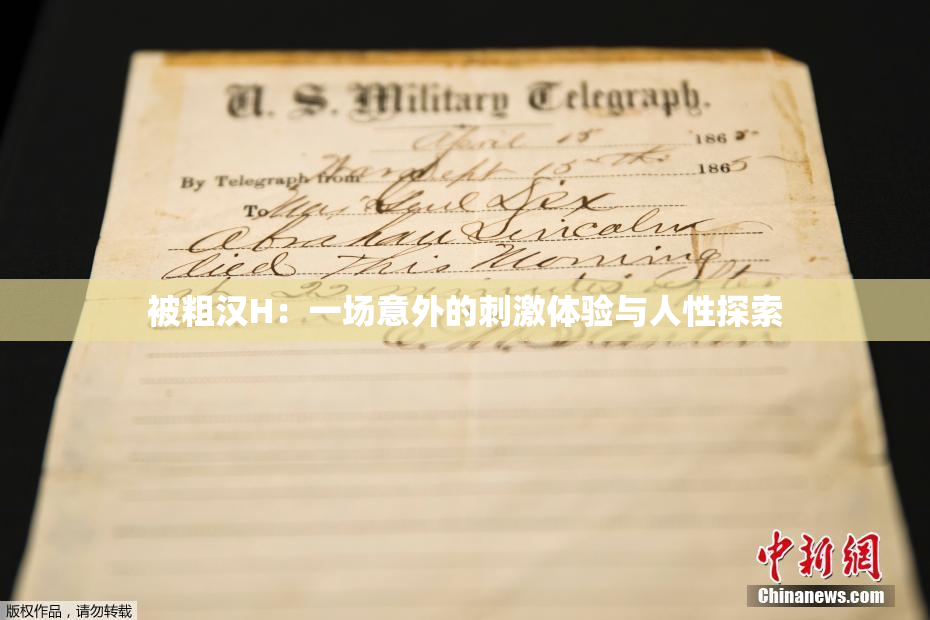 U. S. Military Telegraph.
April 15 1865.
By Telegraph from War Dept 15th 1865
To Maj Genl Dix
Abraham Lincoln
died This Morning
at 22 minutes after
被粗汉H：一场意外的刺激体验与人性探索
E. M. Stanton
中新网
Chinanews.com
版权作品，请勿转载